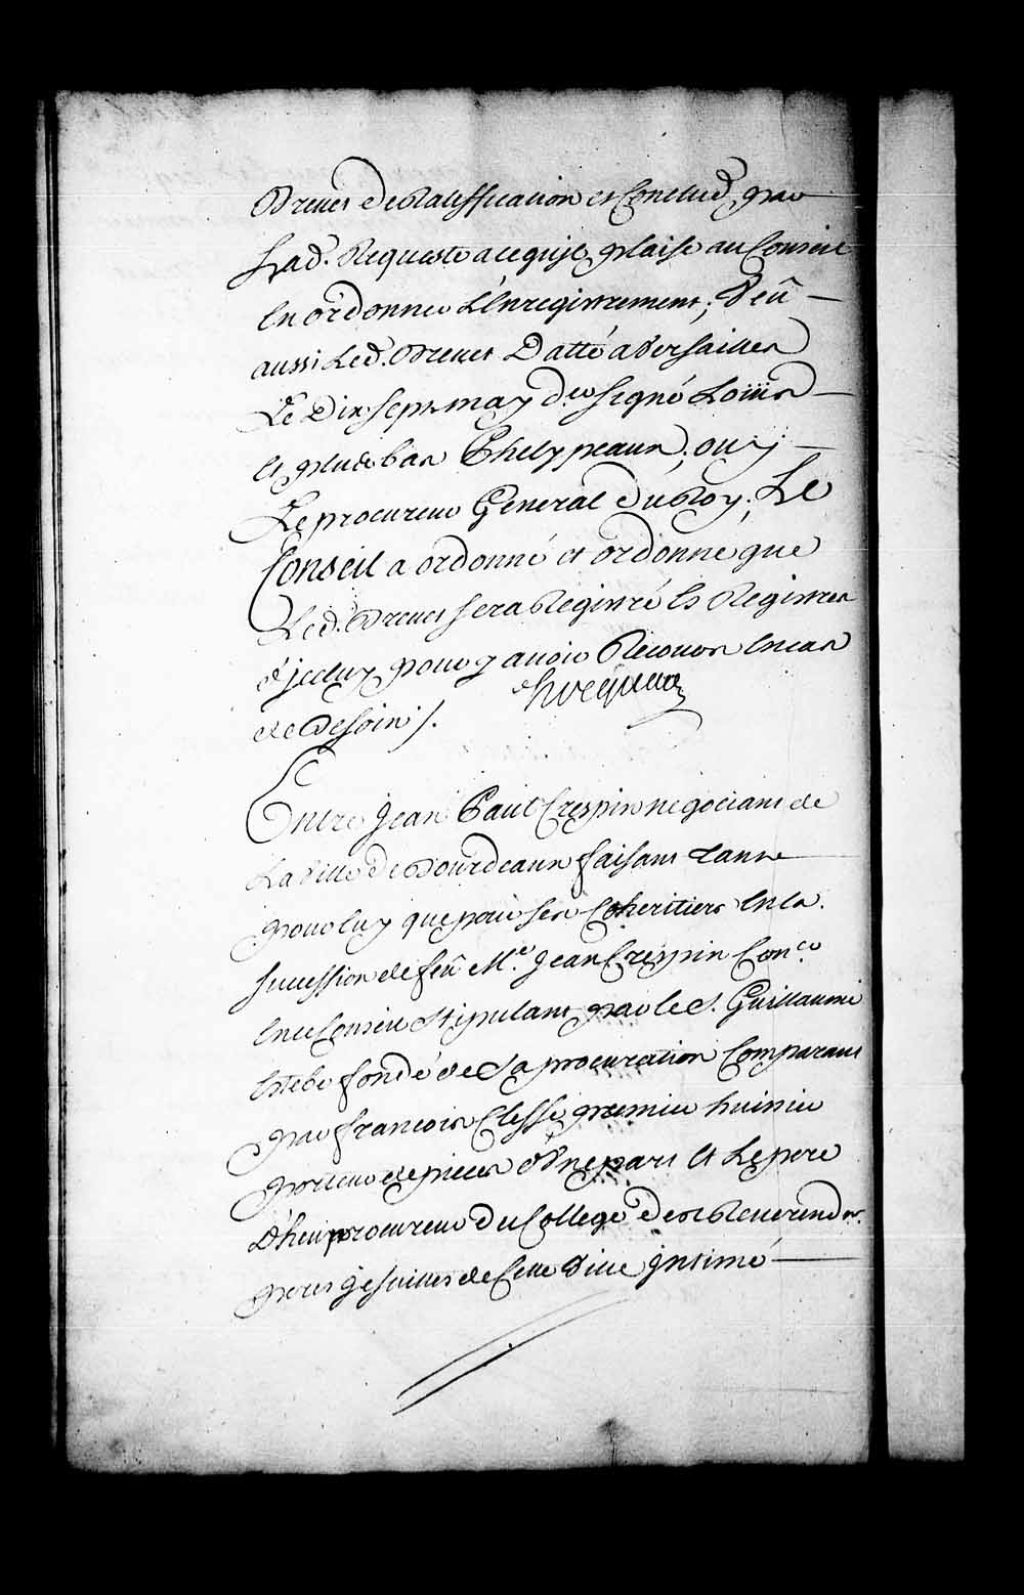 Brevet de Ratiffication et Conclud par
Lad. Requeste a ce qu'jl plaise au Conseil
En ordonner L'Enregistrement; Veû
aussi Led. Brevet Datté a Versailles
Le Dix sept may d.er signé Loüis
Et plus bas Phelypeaux; ouy
Le procureur General du Roy; Le
Conseil a ordonné et ordonne que
Led. Brevet sera Registré Es Registres
d'jceluy pour y avoir Recours En cas
de Besoin ./.
Entre Jean Paul Crespin negociant de
La Ville de Bourdeaux faisant tant
pour luy que pour ses Coheritiers En la
succession de feû Me. Jean Crespin Con.er
En ce Conseil stipulant par le S. Guillaume
Estebe fondé de Sa procuration Comparant
par francois Clesse premier huissier
porteur de pieces d'Vne part Et Le pere
D'heu procureur du College des Reverends
peres Jesuites de Cette Ville Jntimé